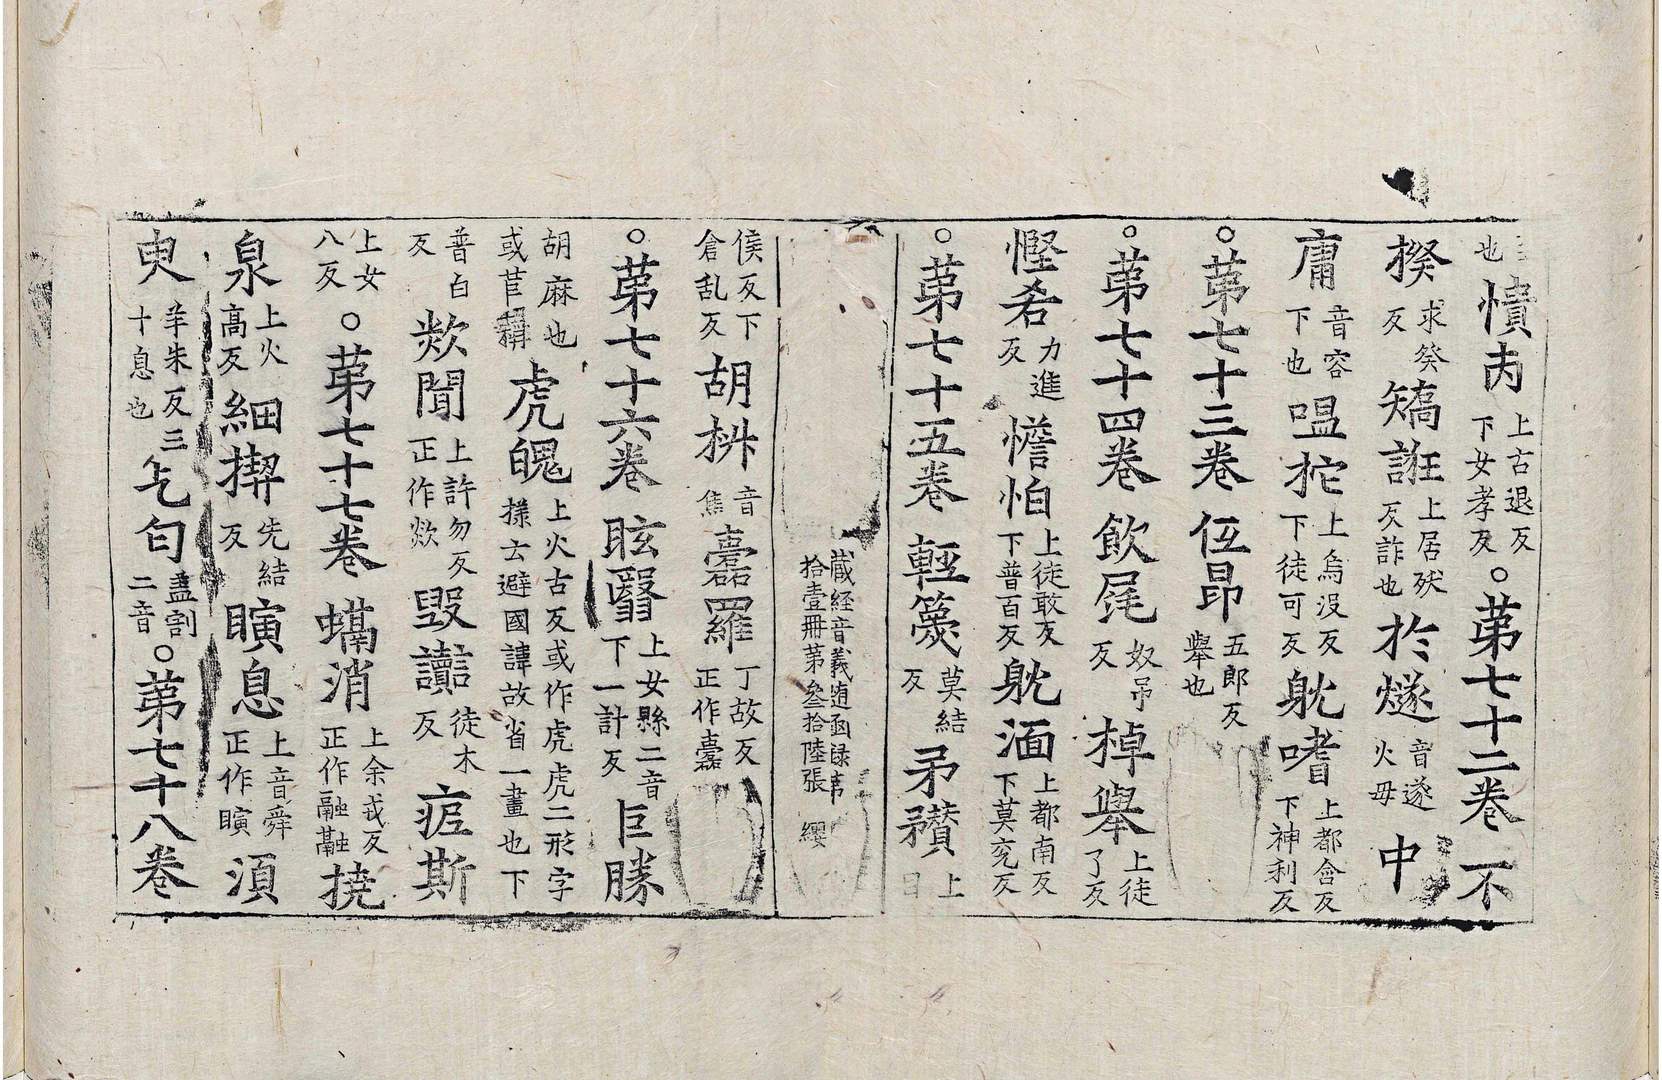 也憒丙上古退反下女孝反○苐七十二卷不
揆求癸反矯誑上居夭反詐也扵燧音遂火母中
庸音容下也嗢柁上烏没反下徒可反躭嗜上都含反下神利反
○苐七十三卷伍昂五郎反舉也
○苐七十四卷飲㞎奴吊反掉舉上徒了反
慳㕰力進反憺怕上徒敢反下普百反躭湎上都南反下莫兖反
○苐七十五卷輕篾莫結反矛䂎上
藏経音義随函録苐拾壹冊苐叄拾陸張 纓
侯反下倉乱反胡㭰音焦蠹羅丁故反正作蠹
○苐七十六卷眩翳上女縣二音下一計反巨勝
胡麻也或苣𦼬虎魄上火古反或作虎虎二形字樣云避國諱故省一畫也下
普白反欻聞上許勿反正作欻毁讟徒木反㾌斯
上女八反○苐七十七卷螎消上余戎反正作融䖇撓
泉上火高反細揳先結反瞚息上音舜正作瞚湏
㬰羊朱反三十息也乞匂盖割二音○苐七十八卷